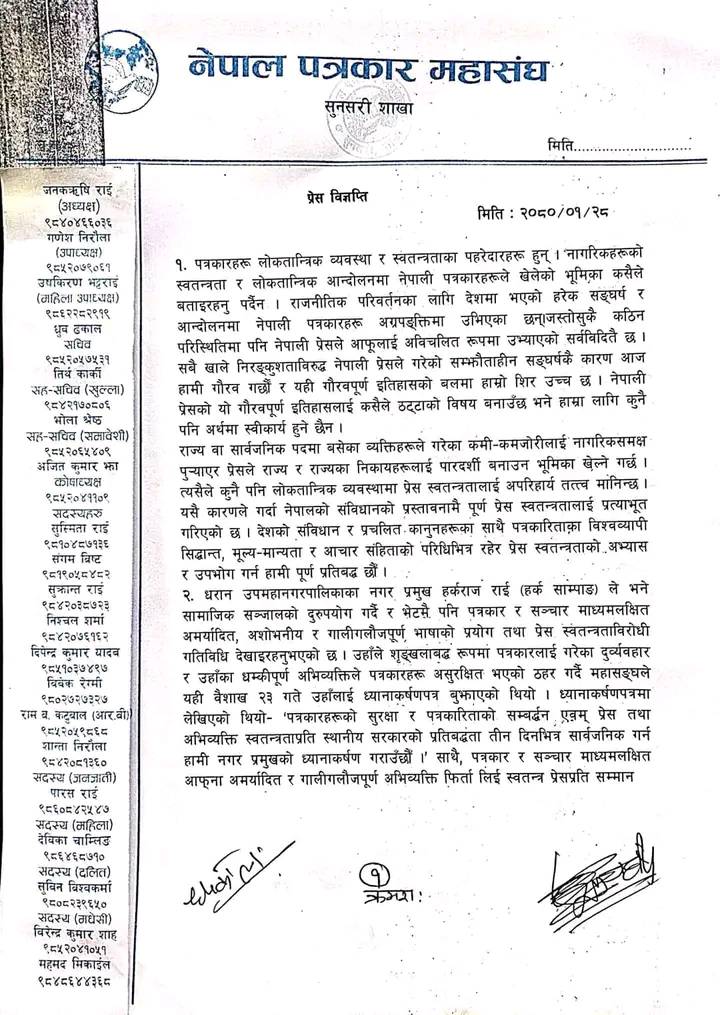 नेपाल पत्रकार महासंघ
सुनसरी शाखा
मिति..............................
जनकऋषि राई
(अध्यक्ष)
९८४०४६६०३६
गणेश निरौला
(उपाध्यक्ष)
९८५२०७९०६१
उषाकिरण भट्टराई
(महिला उपाध्यक्ष)
९८६२२८२९१९
ध्रुव ढकाल
सचिव
९८५२०५७५३१
तिर्थ कार्की
सह-सचिव (खुल्ला)
९८४२१७०८०६
भोला श्रेष्ठ
सह-सचिव (समावेशी)
९८५२०६५४०९
अजित कुमार झा
कोषाध्यक्ष
९८५२०४११०९
सदस्यहरु
सुस्मिता राई
९८१०४८७१३६
संगम बिष्ट
९८१९०५८४८२
सुक्रान्त राई
९८४२०३८७२३
निश्चल शर्मा
९८४२०७६१६२
दिपेन्द्र कुमार यादव
९८५१०३७४९७
विवेक रेग्मी
९८०२७२७३२७
राम ब. कटुवाल (आर.बी)
९८५२०५९८६८
शान्ता निरौला
९८४२०८१३६०
सदस्य (जनजाती)
पारस राई
९८६०८४२५४७
सदस्य (महिला)
देविका चाम्लिङ
९८६४६८७१०
सदस्य (दलित)
सुविन विश्वकर्मा
९८०८२३९६५०
सदस्य (मधेसी)
विरेन्द्र कुमार शाह
९८५२०४१०५१
महमद मिकाईल
९८४८६४४३६८
प्रेस विज्ञप्ति
मिति : २०८०/०१/२८
१. पत्रकारहरू लोकतान्त्रिक व्यवस्था र स्वतन्त्रताका पहरेदारहरू हुन् । नागरिकहरूको
स्वतन्त्रता र लोकतान्त्रिक आन्दोलनमा नेपाली पत्रकारहरूले खेलेको भूमिका कसैले
बताइरहनु पर्दैन । राजनीतिक परिवर्तनका लागि देशमा भएको हरेक सङ्घर्ष र
आन्दोलनमा नेपाली पत्रकारहरू अग्रपङ्क्तिमा उभिएका छन्।जस्तोसुकै कठिन
परिस्थितिमा पनि नेपाली प्रेसले आफूलाई अविचलित रूपमा उभ्याएको सर्वविदितै छ ।
सबै खाले निरङ्कुशताविरुद्ध नेपाली प्रेसले गरेको सम्झौताहीन सङ्घर्षकै कारण आज
हामी गौरव गर्छौं र यही गौरवपूर्ण इतिहासको बलमा हाम्रो शिर उच्च छ । नेपाली
प्रेसको यो गौरवपूर्ण इतिहासलाई कसैले ठट्टाको विषय बनाउँछ भने हाम्रा लागि कुनै
पनि अर्थमा स्वीकार्य हुने छैन ।
राज्य वा सार्वजनिक पदमा बसेका व्यक्तिहरूले गरेका कमी-कमजोरीलाई नागरिकसमक्ष
पुऱ्याएर प्रेसले राज्य र राज्यका निकायहरूलाई पारदर्शी बनाउन भूमिका खेल्ने गर्छ ।
त्यसैले कुनै पनि लोकतान्त्रिक व्यवस्थामा प्रेस स्वतन्त्रतालाई अपरिहार्य तत्त्व मानिन्छ।
यसै कारणले गर्दा नेपालको संविधानको प्रस्तावनामै पूर्ण प्रेस स्वतन्त्रतालाई प्रत्याभूत
गरिएको छ । देशको संविधान र प्रचलित कानुनहरूका साथै पत्रकारिताका विश्वव्यापी
सिद्धान्त, मूल्य-मान्यता र आचार संहिताको परिधिभित्र रहेर प्रेस स्वतन्त्रताको अभ्यास
र उपभोग गर्न हामी पूर्ण प्रतिबद्ध छौं ।
२. धरान उपमहानगरपालिकाका नगर प्रमुख हर्कराज राई (हर्क साम्पाङ) ले भने
सामाजिक सञ्जालको दुरुपयोग गर्दै र भेटमै पनि पत्रकार र सञ्चार माध्यमलक्षित
अमर्यादित, अशोभनीय र गालीगलौजपूर्ण भाषाको प्रयोग तथा प्रेस स्वतन्त्रताविरोधी
गतिविधि देखाइरहनुभएको छ । उहाँले शृङ्खलाबद्ध रूपमा पत्रकारलाई गरेका दुर्व्यवहार
र उहाँका धम्कीपूर्ण अभिव्यक्तिले पत्रकारहरू असुरक्षित भएको ठहर गर्दै महासङ्घले
यही वैशाख २३ गते उहाँलाई ध्यानाकर्षणपत्र बुझाएको थियो । ध्यानाकर्षणपत्रमा
लेखिएको थियो- 'पत्रकारहरूको सुरक्षा र पत्रकारिताको सम्बर्द्धन एवम् प्रेस तथा
अभिव्यक्ति स्वतन्त्रताप्रति स्थानीय सरकारको प्रतिबद्धता तीन दिनभित्र सार्वजनिक गर्न
हामी नगर प्रमुखको ध्यानाकर्षण गराउँछौं ।' साथै, पत्रकार र सञ्चार माध्यमलक्षित
आफ्ना अमर्यादित र गालीगलौजपूर्ण अभिव्यक्ति फिर्ता लिई स्वतन्त्र प्रेसप्रति सम्मान
१
क्रमश: